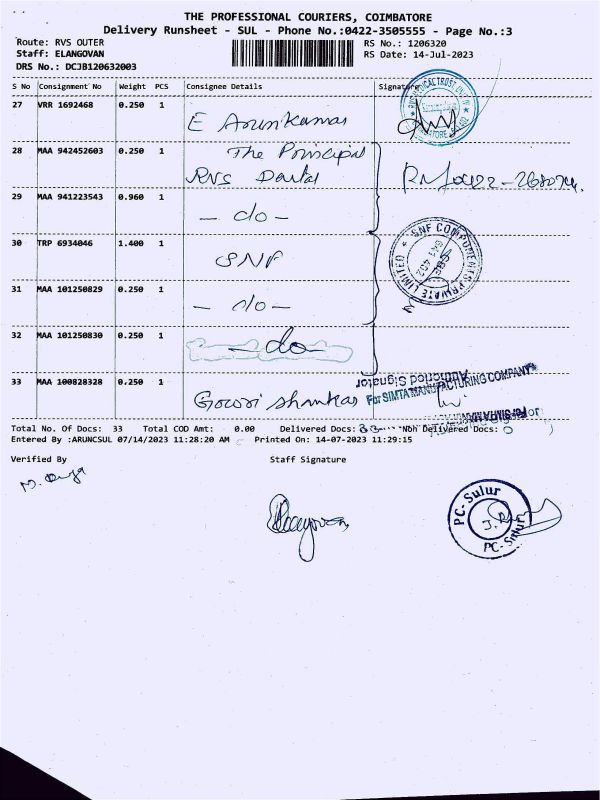 THE PROFESSIONAL COURIERS, COIMBATORE
Delivery Runsheet - SUL - Phone No.:0422-3505555 - Page No.:3
Route: RVS OUTER
RS No.: 1206320
Staff: ELANGOVAN
RS Date: 14-Jul-2023
DRS No.: DCJB120632003
S No Consignment No Weight PCS Consignee Details Signature
27 VRR 1692468 0.250 1 E Arunkumar
28 MAA 942452603 0.250 1 The Principal
RVS Dental
29 MAA 941223543 0.960 1 - do -
30 TRP 6934046 1.400 1 SNF
SNF COMPONENTS PRIVATE LIMITED
31 MAA 101250829 0.250 1 - do -
32 MAA 101250830 0.250 1 - do -
33 MAA 100828328 0.250 1 Gowri Shankar
For SIMTA MANUFACTURING COMPANY
Authorised Signator
Total No. Of Docs: 33 Total COD Amt: 0.00 Delivered Docs: 33 Non Delivered Docs: 0
Entered By :ARUNCSUL 07/14/2023 11:28:20 AM Printed On: 14-07-2023 11:29:15
Verified By Staff Signature
PC- Sulur
PC- Sulur